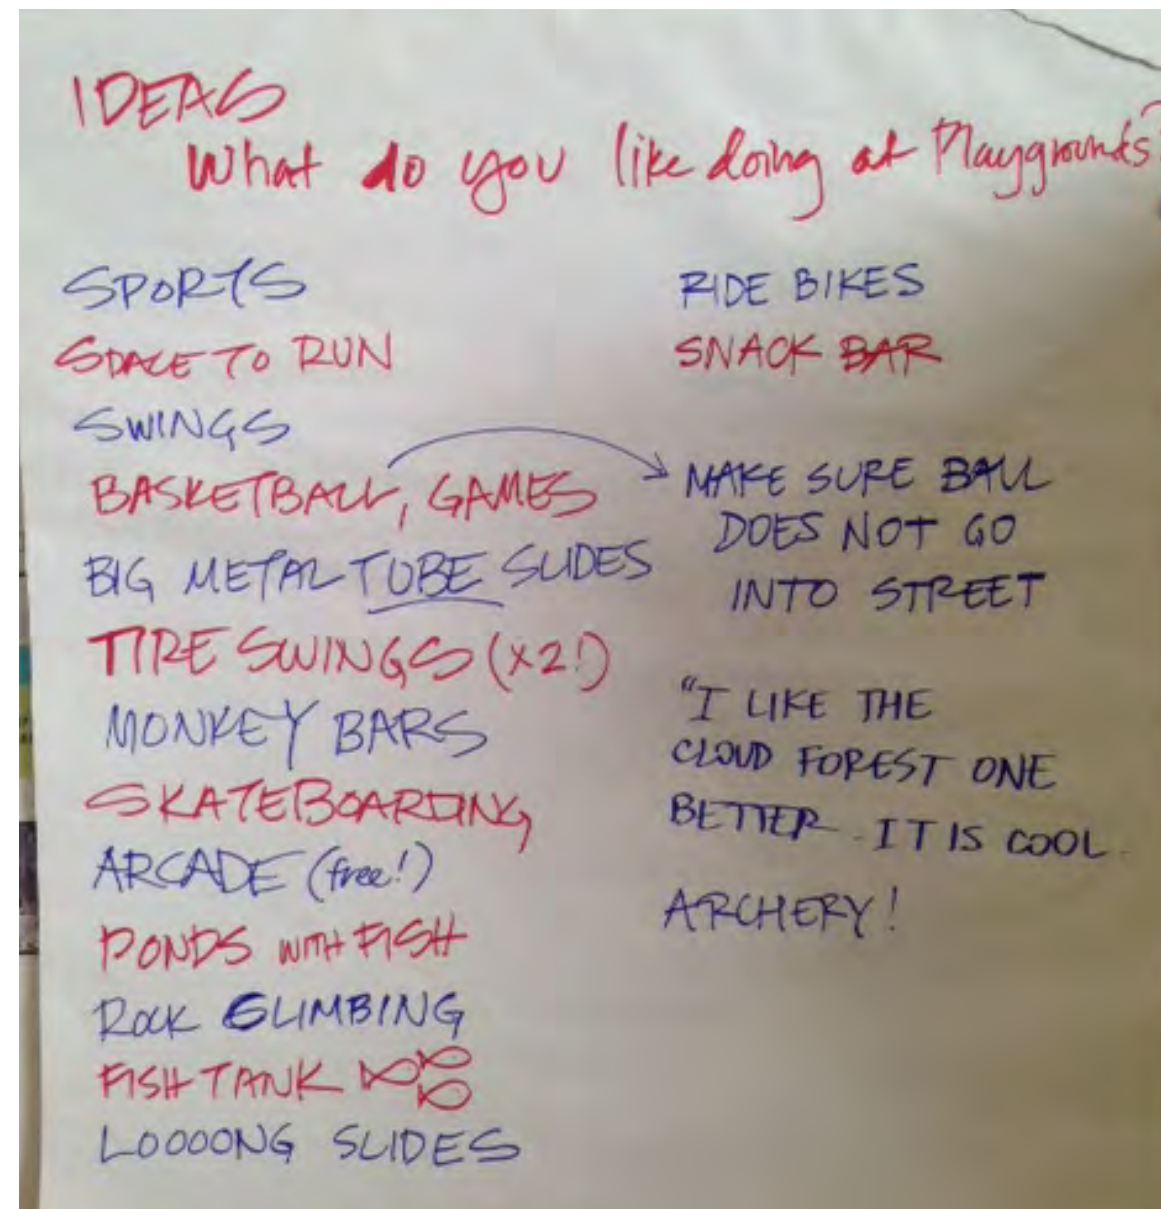 IDEAS
What do you like doing at Playgrounds?
SPORTS
SPACE TO RUN
SWINGS
BASKETBALL, GAMES
BIG METAL TUBE SLIDES
TIRE SWINGS (x2!)
MONKEY BARS
SKATEBOARDING
ARCADE (free!)
PONDS WITH FISH
ROCK CLIMBING
FISH TANK
LOOOONG SLIDES
RIDE BIKES
SNACK BAR
MAKE SURE BALL
DOES NOT GO
INTO STREET
"I LIKE THE
CLOUD FOREST ONE
BETTER. IT IS COOL.
ARCHERY!